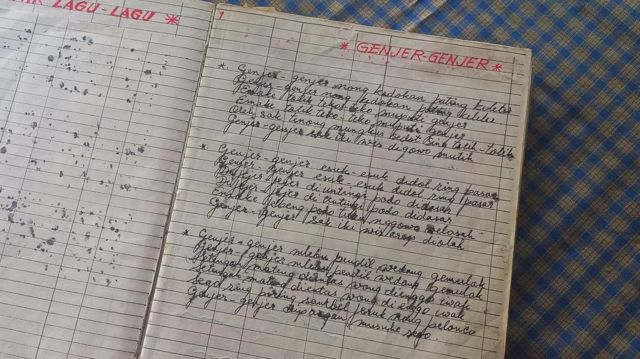 LAGU - LAGU *
1
* GENJER-GENJER *
*. Genjer - genjer nong kedokan pating keleler
Genjer - genjer nong kedokan pating keleler
Emake teko - teko muputi genjer
Emake teko - teko muputi genjer
Oleh sak tenong mungkur sedot
Genjer - genjer sak iki wis digowo mulih
*. Genjer - genjer esuk - esuk didol ring pasar
Genjer - genjer esuk - esuk didol ring pasar
jejer diuntingi podo didasar
jejer diuntingi podo didasar
podo tuku nggowo
Genjer - genjer sak iki wis arep diolah
*. Genjer - genjer mlebu pendil wedang gemulak
Genjer - genjer mlebu pendil wedang gemulak
Setengah mateng dientas wong dienggo iwak
Setengah mateng dientas wong dienggo iwak
Sego sambel jeruk ring pelonco
Genjer - genjer musuhe sego.